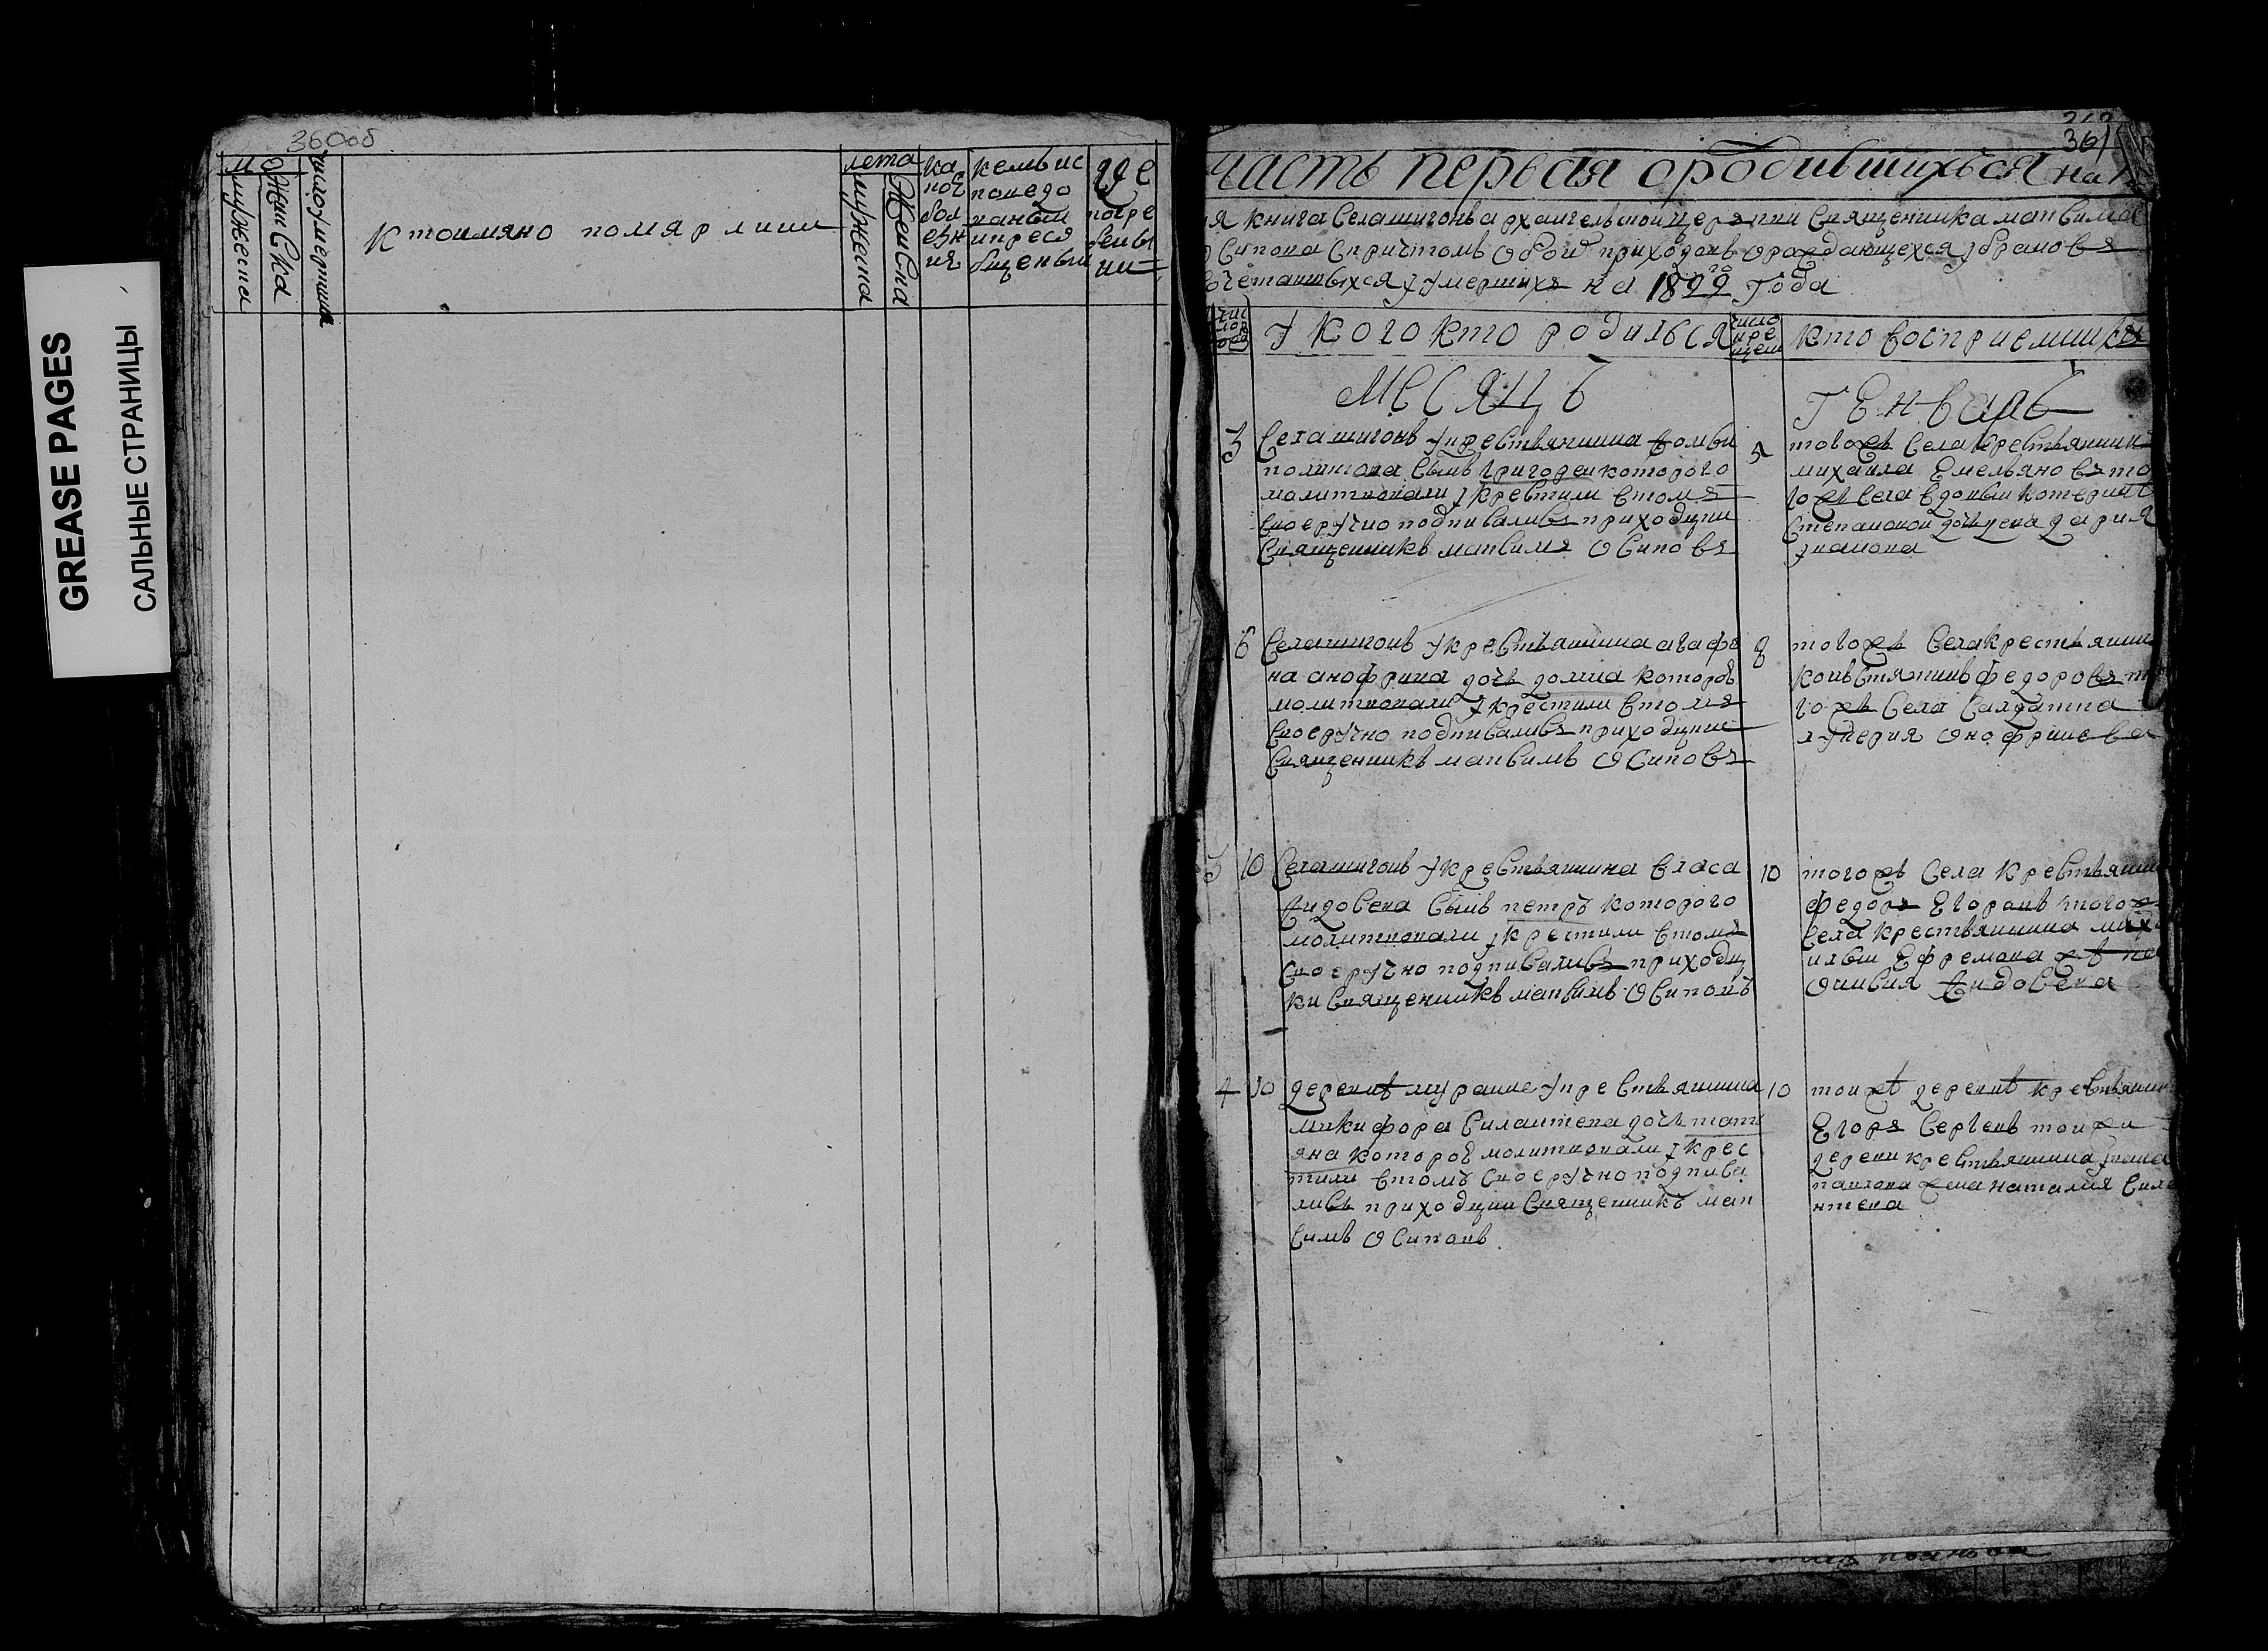 GREASE PAGES
САЛЬНЫЕ СТРАНИЦЫ
360об
361
мужеска
женска
число умерших
кто имяно помярли
лета
мужеска
женска
ка
кое
бол
езн
ия
кем ыс
поведо
ваныи
ипрес
бщеныи
где
погре
бены
часть первая ородившихъся на
я книга села шигонъ архангельскои церкви священника максима
Осипова спричтомъ
счетавшыхся умершихъ на 1822 года
у кого кто родилъся
число
кре
щен
кто восприемники
месяцъ
генварь
3
села шигонъ укрестьянина фомы
сынъ григореи которого
молитвовали икрестили втомъ
своеручно подписались приходцки
священникъ максимъ Осиповъ
5
тогожъ села крестьянинъ
михаила Емельяновъ то
гожъ села вдовы катерины
степановои дочь дарья
6
села шигонъ укрестьянина агафо
на анофрива дочь домна которое
молитвовали икрестили втомъ
своеручно подписались приходцки
священникъ максимъ Осиповъ
8
тогожъ села крестьянин
констянтинъ федоровъ то
гожъ села салдатка
лукерия Онофриева
3
10
села шигонъ укрестьянина власа
фидосева сынъ петръ которого
молитвовали икрестили втомъ
своеручно подписались приходц
ки священникъ максимъ Осиповъ
10
тогожъ села крестьянин
федоръ Егоровъ итогож
села крестьянина миха
илы Ефремова же на
фидосева
4
10
деревне муране укрестьянина
микифора силантева дочь тать
яна которое молитвовали икрес
тили втомъ своеручно подписа
лись приходцки священникъ мак
симъ Осиповъ
10
тоиже деревне крестьянин
Егоръ Сергевъ тоиже
деревни крестьянина ивана
павлова жена наталия сила
нтева